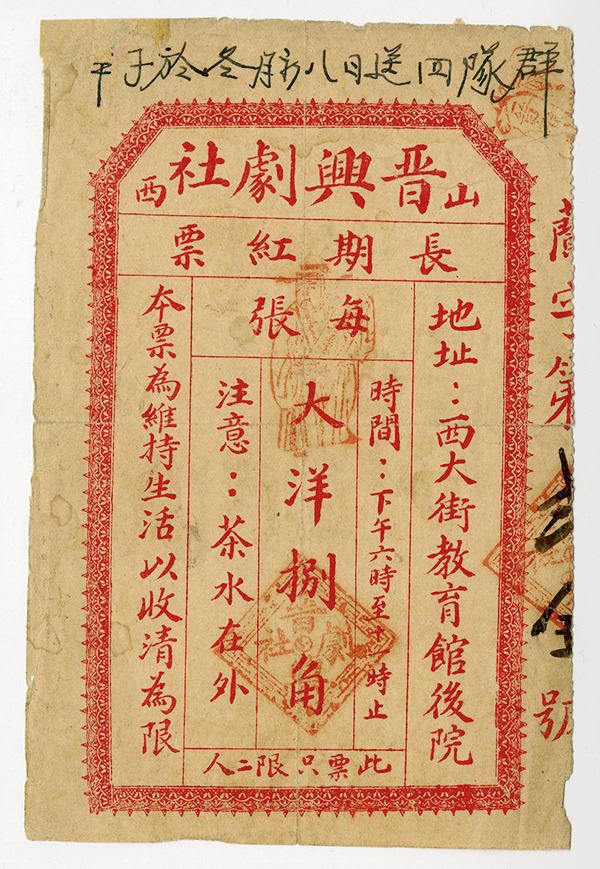 八日送四隊群
山西晋興劇社
長期紅票
每張
地址：西大街教育館後院
時間：下午六時至十一時止
大洋捌角
注意：茶水在外
本票為維持生活以收清為限
此票只限二人
字第
號
晋
劇社